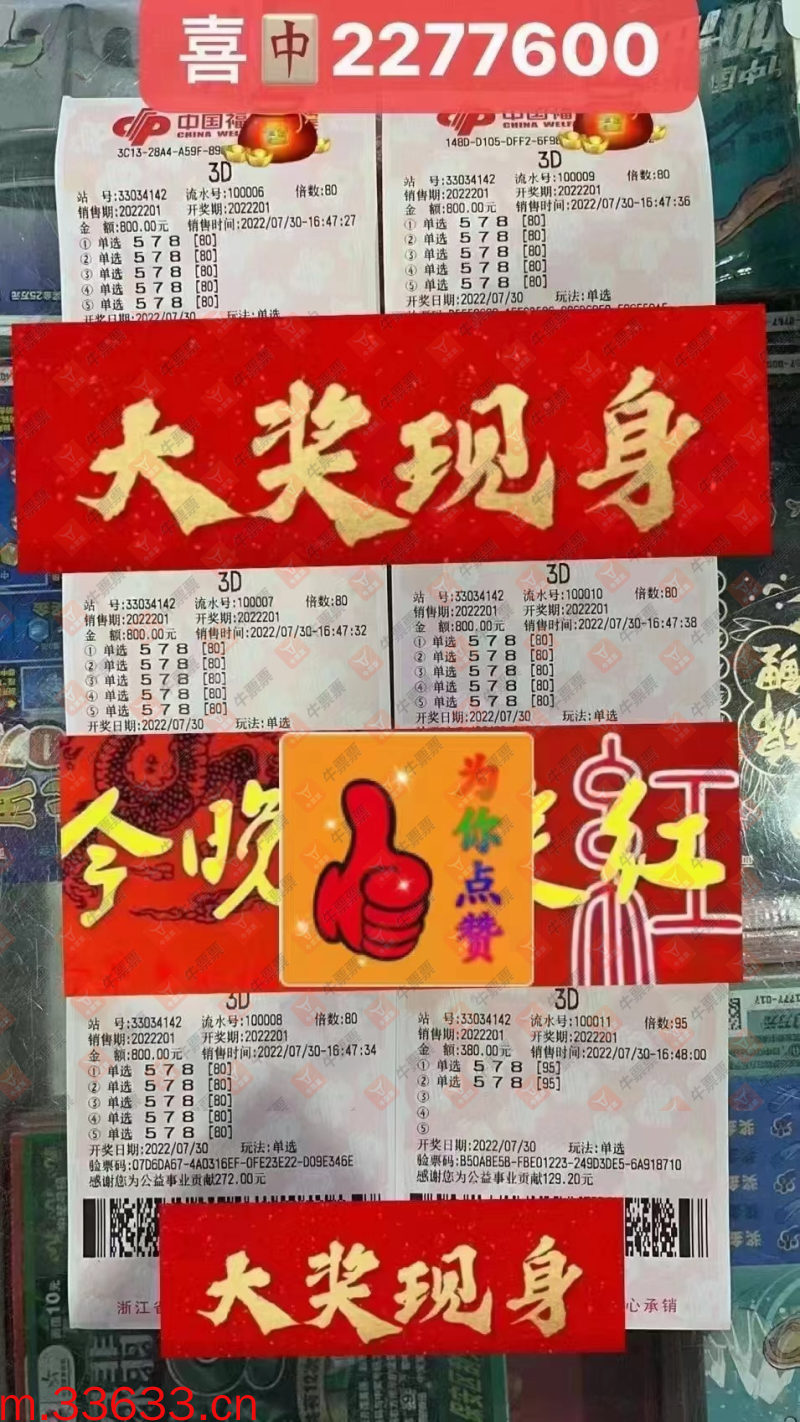 喜🀄2277600
中国福
CHINA WEL
3C13-28A4-A59F-89
3D
站 号:33034142 流水号:100006 倍数:80
销售期:2022201 开奖期:2022201
金 额:800.00元 销售时间:2022/07/30-16:47:27
① 单选 5 7 8 [80]
② 单选 5 7 8 [80]
③ 单选 5 7 8 [80]
④ 单选 5 7 8 [80]
⑤ 单选 5 7 8 [80]
开奖日期:2022/07/30 玩法:单选
中国福
CHINA WELF
148D-D105-DFF2-6F98
3D
站 号:33034142 流水号:100009 倍数:80
销售期:2022201 开奖期:2022201
金 额:800.00元 销售时间:2022/07/30-16:47:36
① 单选 5 7 8 [80]
② 单选 5 7 8 [80]
③ 单选 5 7 8 [80]
④ 单选 5 7 8 [80]
⑤ 单选 5 7 8 [80]
开奖日期:2022/07/30 玩法:单选
大奖现身
3D
站 号:33034142 流水号:100007 倍数:80
销售期:2022201 开奖期:2022201
金 额:800.00元 销售时间:2022/07/30-16:47:32
① 单选 5 7 8 [80]
② 单选 5 7 8 [80]
③ 单选 5 7 8 [80]
④ 单选 5 7 8 [80]
⑤ 单选 5 7 8 [80]
开奖日期:2022/07/30 玩法:单选
3D
站 号:33034142 流水号:100010 倍数:80
销售期:2022201 开奖期:2022201
金 额:800.00元 销售时间:2022/07/30-16:47:38
① 单选 5 7 8 [80]
② 单选 5 7 8 [80]
③ 单选 5 7 8 [80]
④ 单选 5 7 8 [80]
⑤ 单选 5 7 8 [80]
开奖日期:2022/07/30 玩法:单选
今晚
为你点赞
红
3D
站 号:33034142 流水号:100008 倍数:80
销售期:2022201 开奖期:2022201
金 额:800.00元 销售时间:2022/07/30-16:47:34
① 单选 5 7 8 [80]
② 单选 5 7 8 [80]
③ 单选 5 7 8 [80]
④ 单选 5 7 8 [80]
⑤ 单选 5 7 8 [80]
开奖日期:2022/07/30 玩法:单选
验票码:07D6DA67-4A0316EF-0FE23E22-D09E346E
感谢您为公益事业贡献272.00元
3D
站 号:33034142 流水号:100011 倍数:95
销售期:2022201 开奖期:2022201
金 额:380.00元 销售时间:2022/07/30-16:48:00
① 单选 5 7 8 [95]
② 单选 5 7 8 [95]
③
④
⑤
开奖日期:2022/07/30 玩法:单选
验票码:B50A8E5B-FBE01223-249D3DE5-6A918710
感谢您为公益事业贡献129.20元
大奖现身
浙江省
心承销
m.33633.cn
牛票票